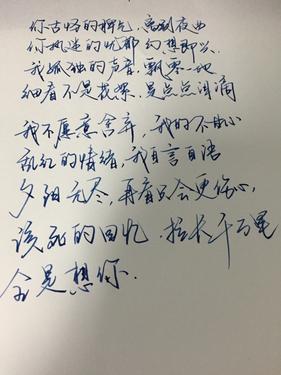 你古怪的脾气，离别夜曲
你执迷的忧郁 幻想即兴
我孤独的声音，飘零一地
细看不是花瓣，是点点泪滴
我不愿意舍弃，我的不甘心
乱红的情绪，我自言自语
夕阳无尽，再看只会更伤心，
该死的回忆，拉长千万里
全是想你.